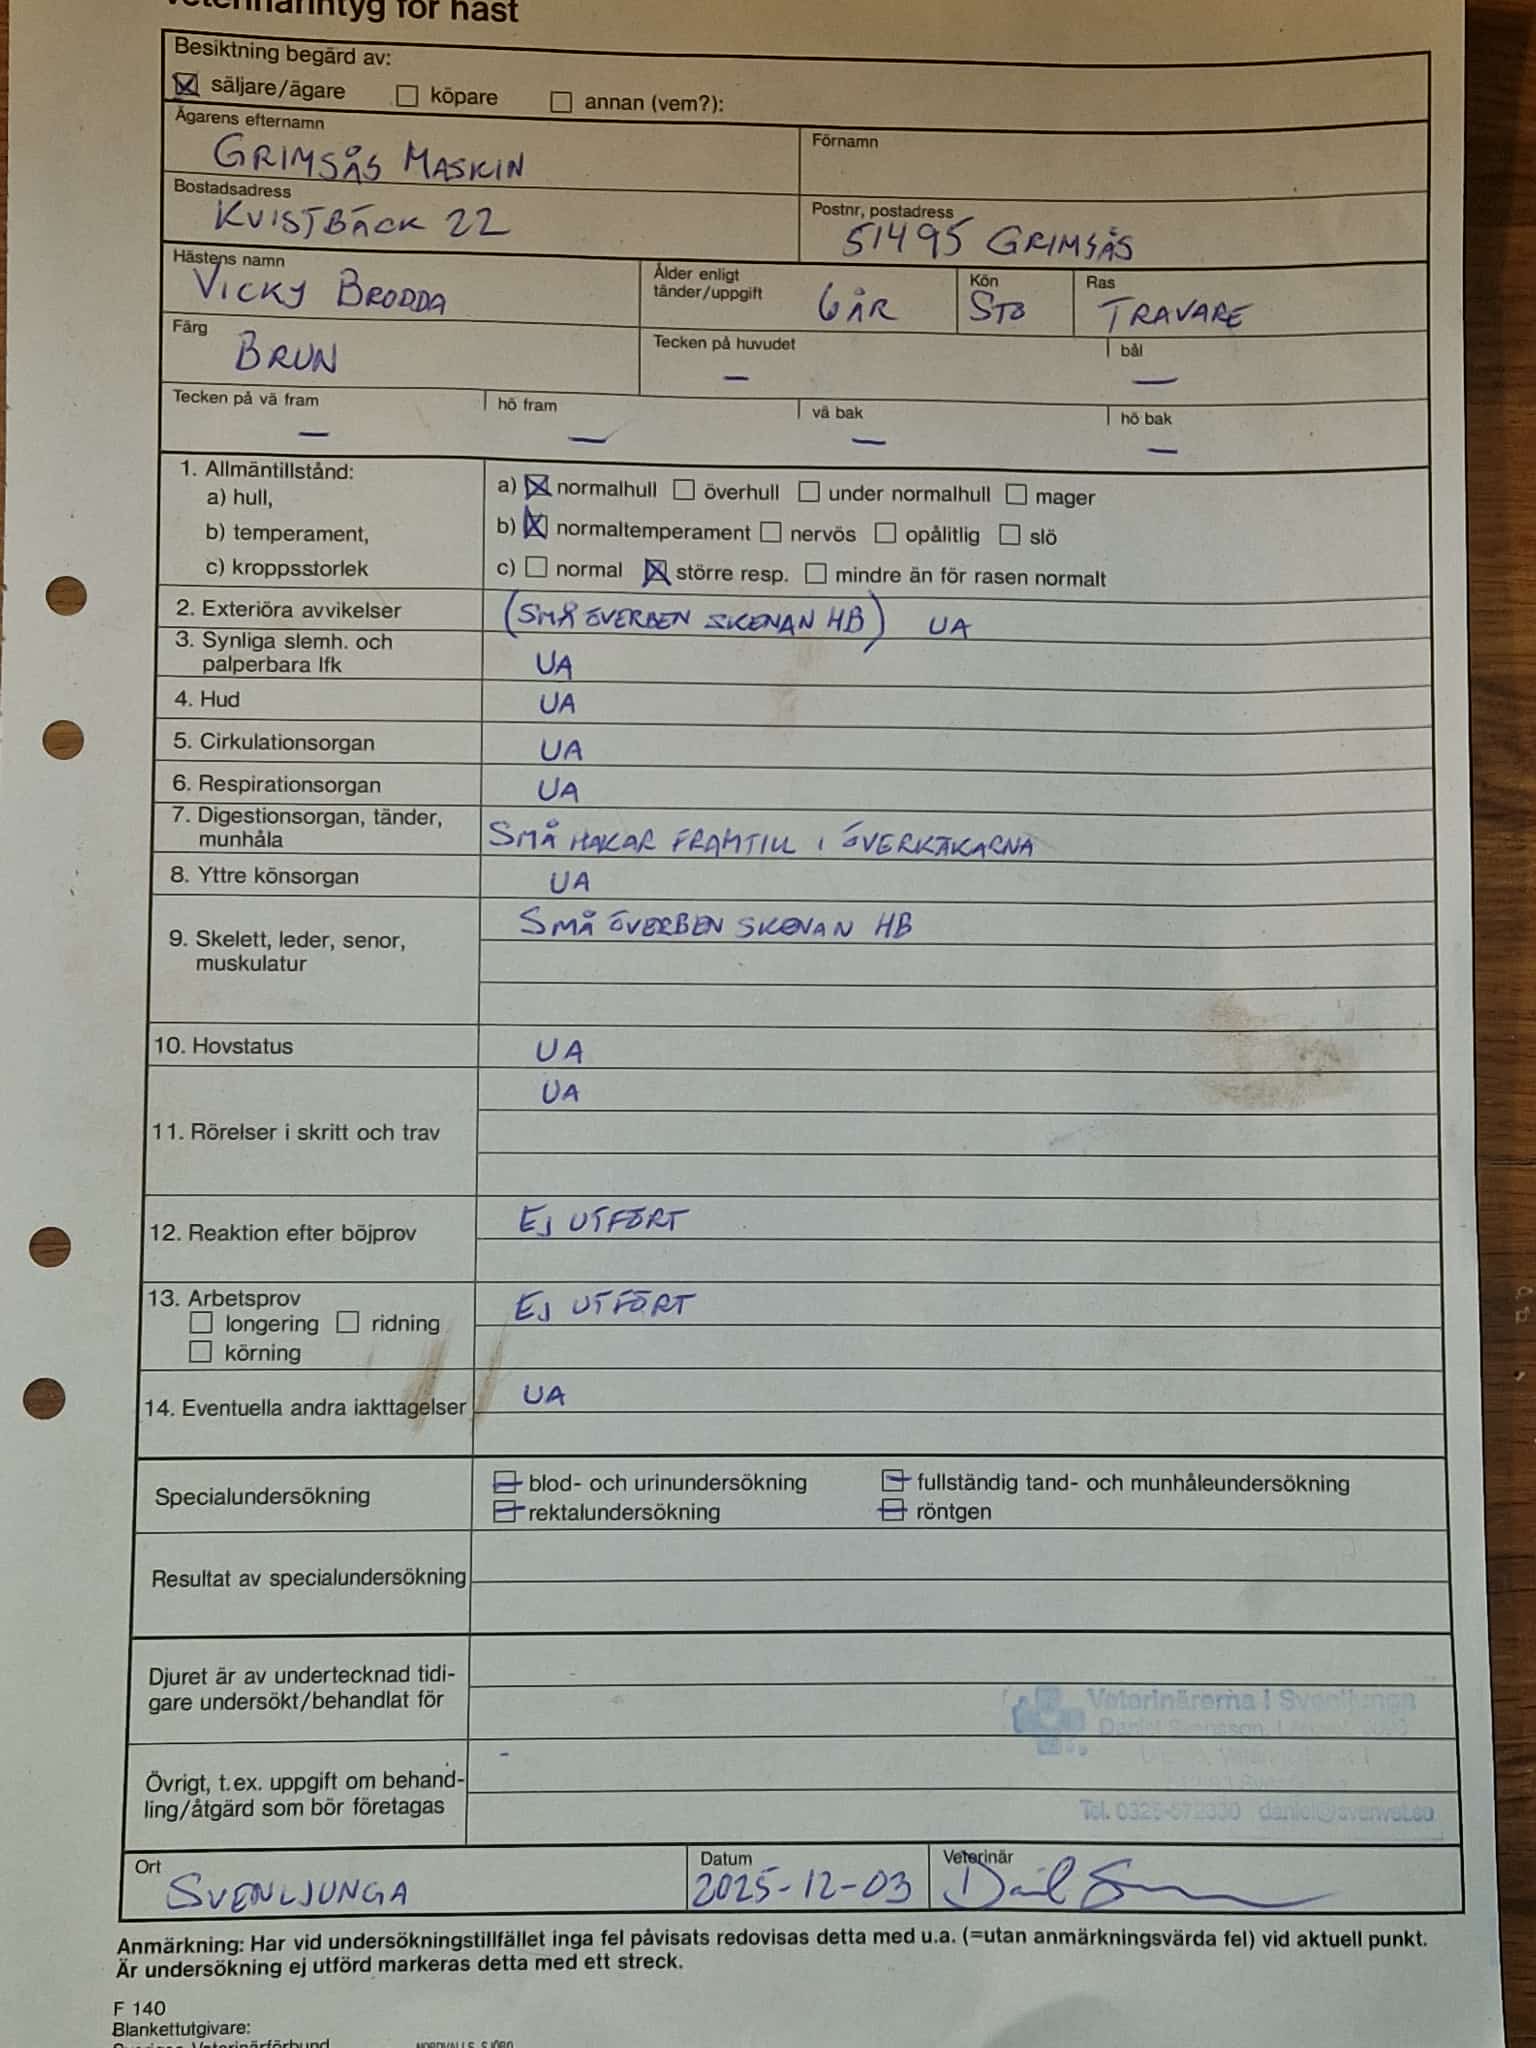 Veterinärintyg för häst
Besiktning begärd av:
säljare/ägare köpare annan (vem?):
Ägarens efternamn Förnamn
GRIMSÅS MASKIN
Bostadsadress Postnr, postadress
KVISTBÄCK 22 51495 GRIMSÅS
Hästens namn Ålder enligt tänder/uppgift Kön Ras
VICKY BRODDA 6 ÅR STO TRAVARE
Färg Tecken på huvudet bål
BRUN — —
Tecken på vä fram hö fram vä bak hö bak
— — — —
1. Allmäntillstånd:
a) hull, a) normalhull överhull under normalhull mager
b) temperament, b) normaltemperament nervös opålitlig slö
c) kroppsstorlek c) normal större resp. mindre än för rasen normalt
2. Exteriöra avvikelser (SMÅ ÖVERBEN SKENAN HB) UA
3. Synliga slemh. och
palperbara lfk UA
4. Hud UA
5. Cirkulationsorgan UA
6. Respirationsorgan UA
7. Digestionsorgan, tänder,
munhåla SMÅ HAKAR FRAMTILL I ÖVERKÄKARNA
8. Yttre könsorgan UA
SMÅ ÖVERBEN SKENAN HB
9. Skelett, leder, senor,
muskulatur
10. Hovstatus UA
UA
11. Rörelser i skritt och trav
12. Reaktion efter böjprov EJ UTFÖRT
13. Arbetsprov EJ UTFÖRT
longering ridning
körning
14. Eventuella andra iakttagelser UA
Specialundersökning blod- och urinundersökning fullständig tand- och munhåleundersökning
rektalundersökning röntgen
Resultat av specialundersökning
Djuret är av undertecknad tidi-
gare undersökt/behandlat för
Veterinärerna i Svenljunga
Daniel Svensson
Övrigt, t.ex. uppgift om behand- -
ling/åtgärd som bör företagas
Tel. 0325- daniel@svenvet.se
Ort Datum Veterinär
SVENLJUNGA 2025-12-03
Anmärkning: Har vid undersökningstillfället inga fel påvisats redovisas detta med u.a. (=utan anmärkningsvärda fel) vid aktuell punkt.
Är undersökning ej utförd markeras detta med ett streck.
F 140
Blankettutgivare:
Sveriges Veterinärförbund NORDVALLS SJÖBO